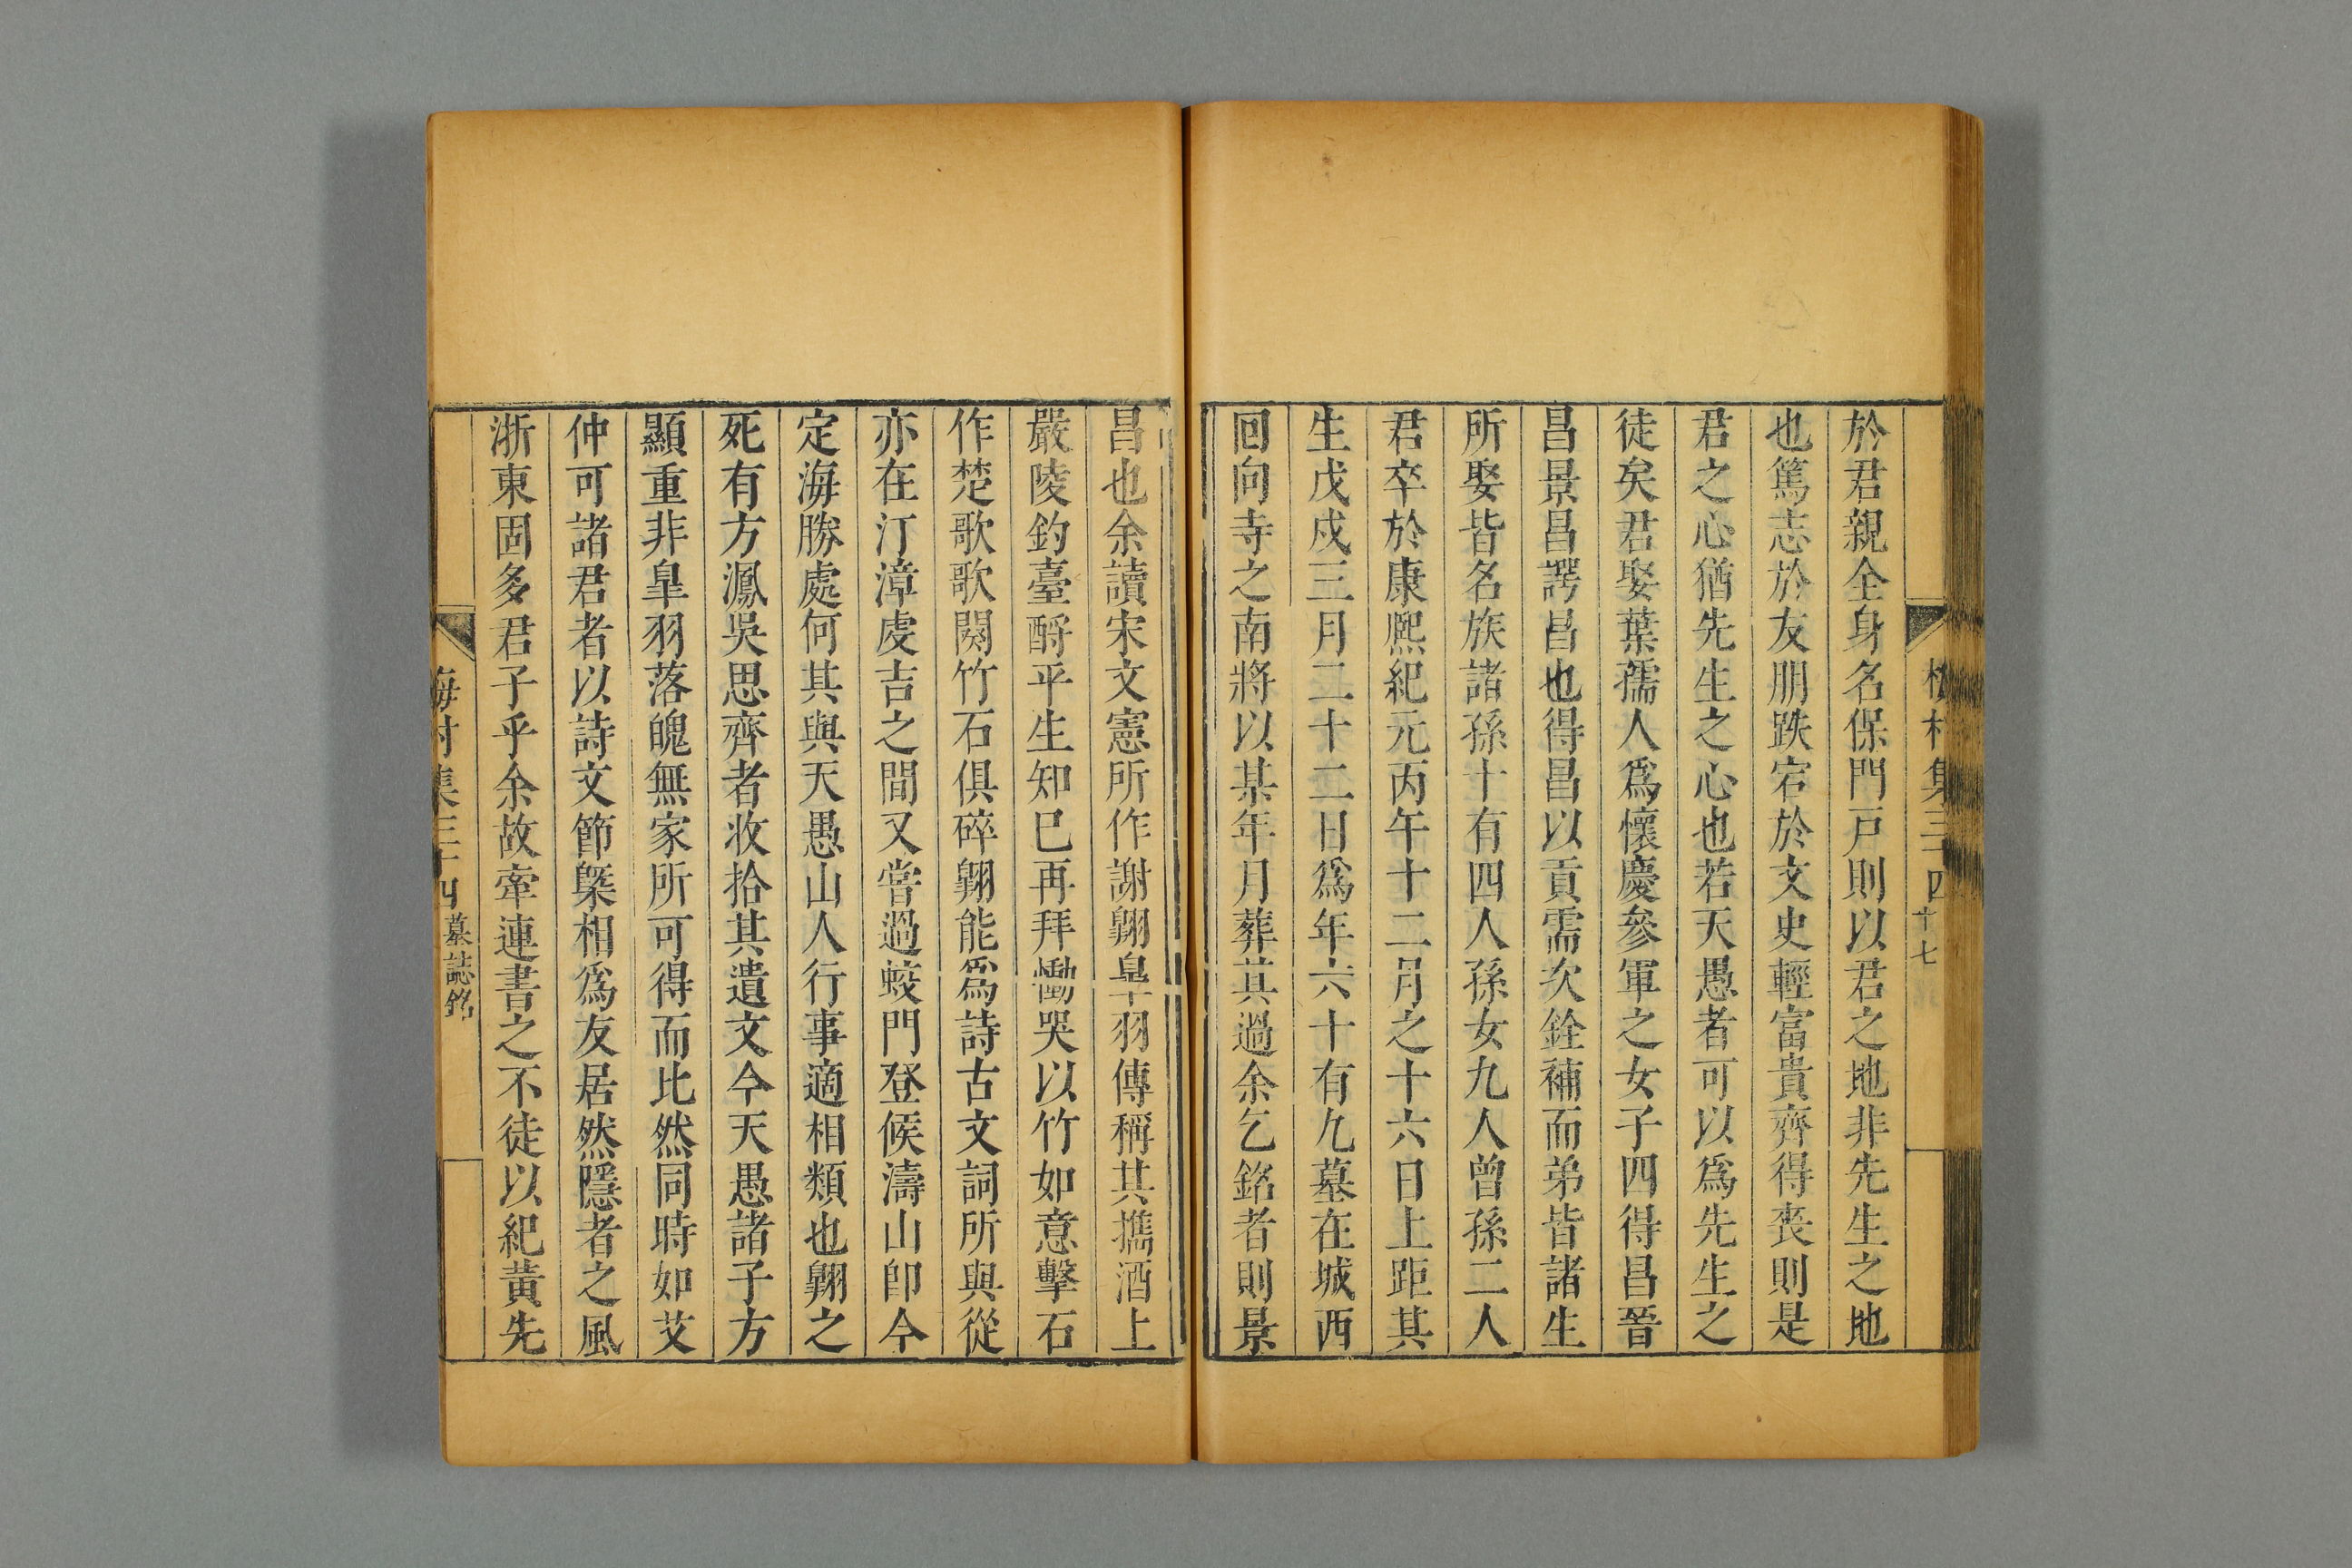 梅村集三十四 十七
於君親全身名保門戸則以君之地非先生之地
也篤志於友朋跌宕於文史輕富貴齊得喪則是
君之心猶先生之心也若天愚者可以爲先生之
徒矣君娶葉孺人爲懷慶參軍之女子四得昌晉
昌景昌諤昌也得昌以貢需次銓補而弟皆諸生
所娶皆名族諸孫十有四人孫女九人曾孫二人
君卒於康熙紀元丙午十二月之十六日上距其
生戊戌三月二十二日爲年六十有九墓在城西
回向寺之南將以某年月葬其過余乞銘者則景
昌也余讀宋文憲所作謝翺皐羽傳稱其攜酒上
嚴陵釣臺酹平生知已再拜慟哭以竹如意擊石
作楚歌歌闋竹石俱碎翺能爲詩古文詞所與從
亦在汀漳虔吉之間又嘗過蛟門登候濤山卽今
定海勝處何其與天愚山人行事適相類也翺之
死有方鳳吳思齊者收拾其遺文今天愚諸子方
顯重非皐羽落魄無家所可得而比然同時如艾
仲可諸君者以詩文節槩相爲友居然隱者之風
浙東固多君子乎余故牽連書之不徒以紀黃先
梅村集三十四 墓誌銘